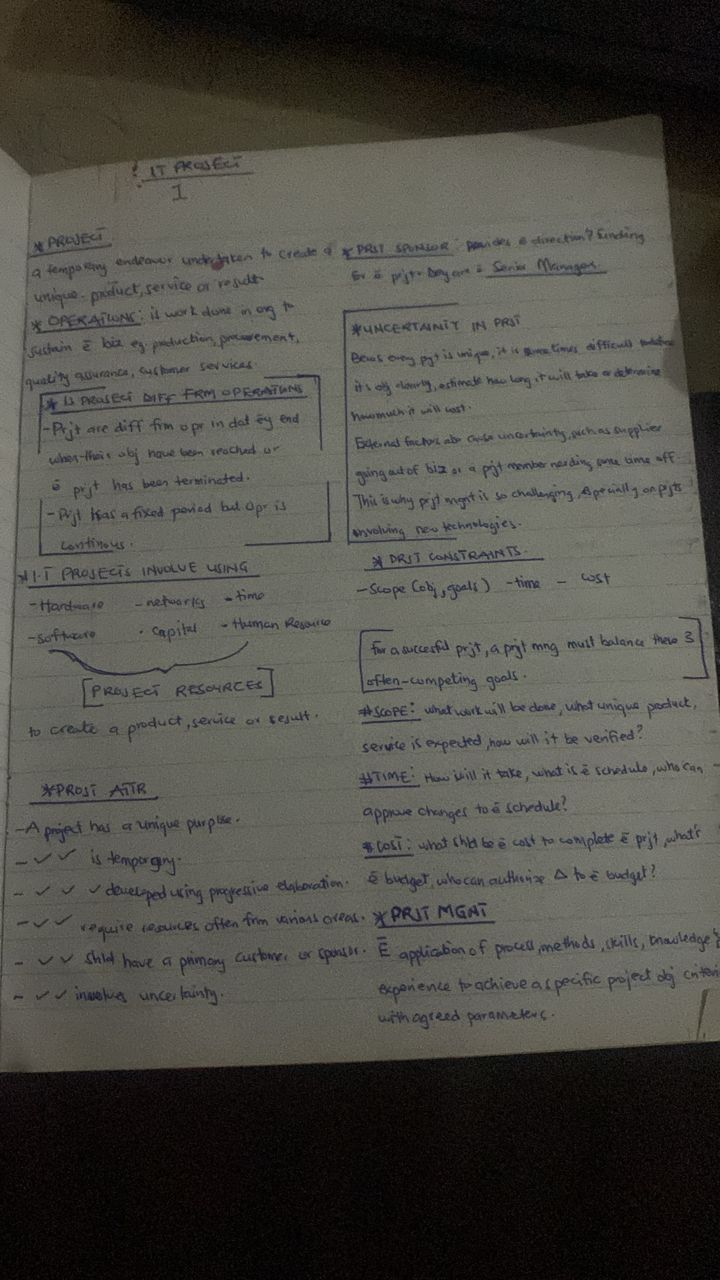 IT PROJECT
1
* PROJECT
a temporary endeavor undertaken to create a
unique product, service or result
* OPERATIONS: is work done in org to
sustain ē biz eg production, procurement,
quality assurance, customer services
* IS PROJECT DIFF FRM OPERATIONS
- Prjt are diff frm opr in dat ēy end
when their obj have been reached or
ē prjt has been terminated.
- Prjt has a fixed period but opr is
continous.
* I.T PROJECTS INVOLVE USING
- Hardware - networks - time
- software - Capital - Human Resource
[PROJECT RESOURCES]
to create a product, service or result.
* PROJT ATTR
- A project has a unique purpose.
- ✓ ✓ is temporary.
- ✓ ✓ ✓ developed using progressive elaboration.
- ✓ ✓ require resources often frm various areas.
- ✓ ✓ shld have a primary customer or sponsor.
- ✓ ✓ involves uncertainty.
* PRJT SPONSOR: provides ē direction? funding
for ē prjt. Dey are ē Senior Manager
* UNCERTAINTY IN PRJT
every prjt is unique, it is sometimes difficult
its obj clearly, estimate how long it will take or determine
how much it will cost.
External factors also cause uncertainty, such as supplier
going out of biz or a prjt member needing some time off
This is why prjt mgnt is so challenging, especially on prjts
involving new technologies.
* PRJT CONSTRAINTS.
- Scope (obj, goals) - time - cost
for a succesful prjt, a prjt mng must balance these 3
often-competing goals.
# SCOPE: what work will be done, what unique product,
service is expected, how will it be verified?
# TIME: How will it take, what is ē schedule, who can
approve changes to ē schedule?
* COST: what shld be ē cost to complete ē prjt, what's
ē budget, who can authorize Δ to ē budget?
* PRJT MGNT
Ē application of process, methods, skills, knowledge &
experience to achieve a specific project obj criteri
with agreed parameters.